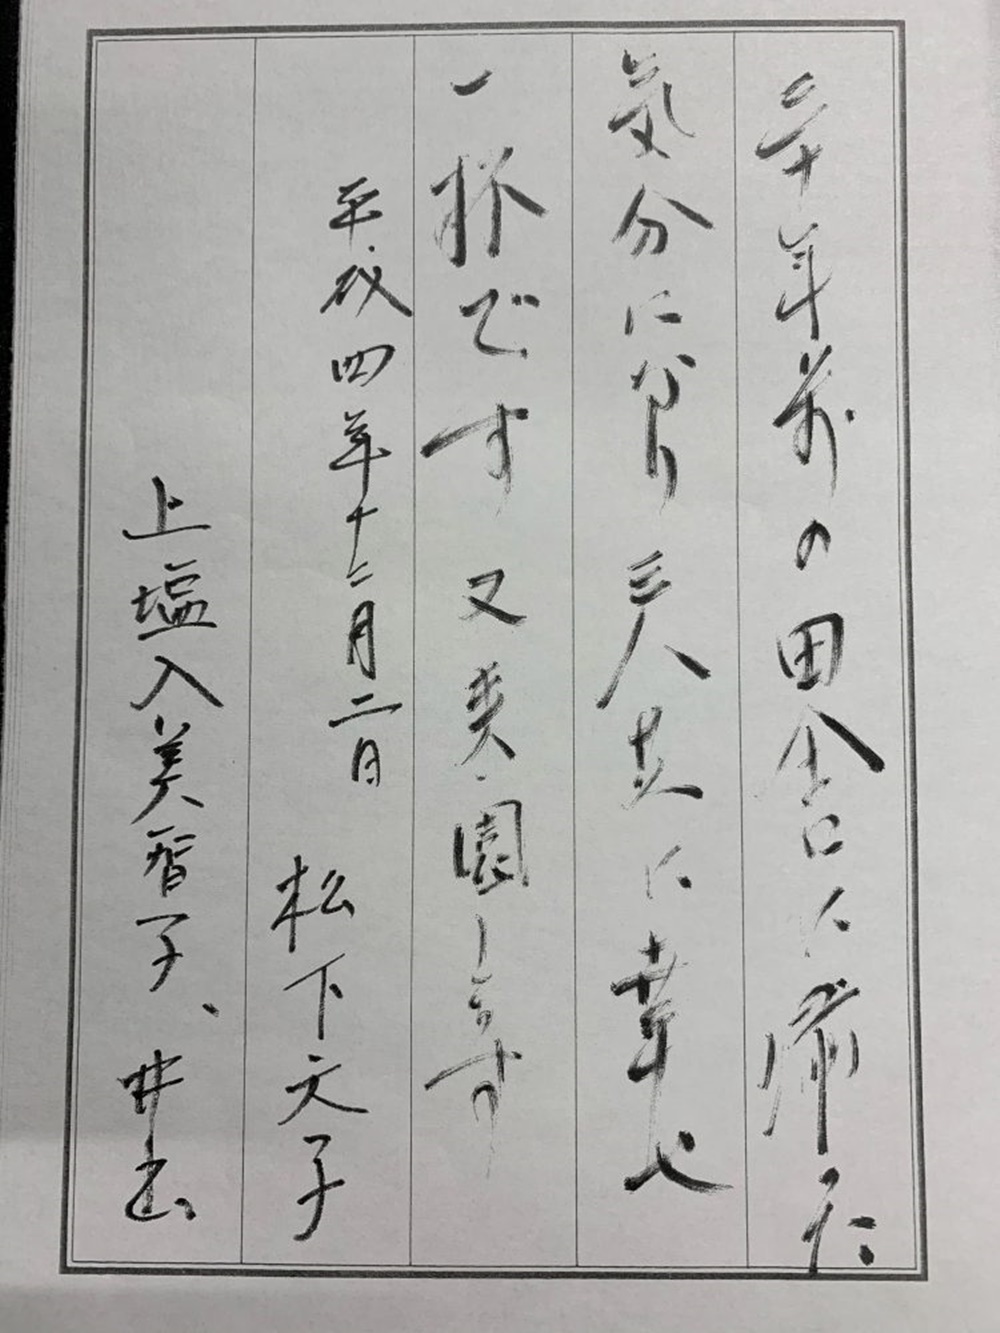 三十年前の田舎に帰った
気分になり三人共に幸せ
一杯です 又来園します
平成四年十二月二日
松下文子
上塩入美智子、井出